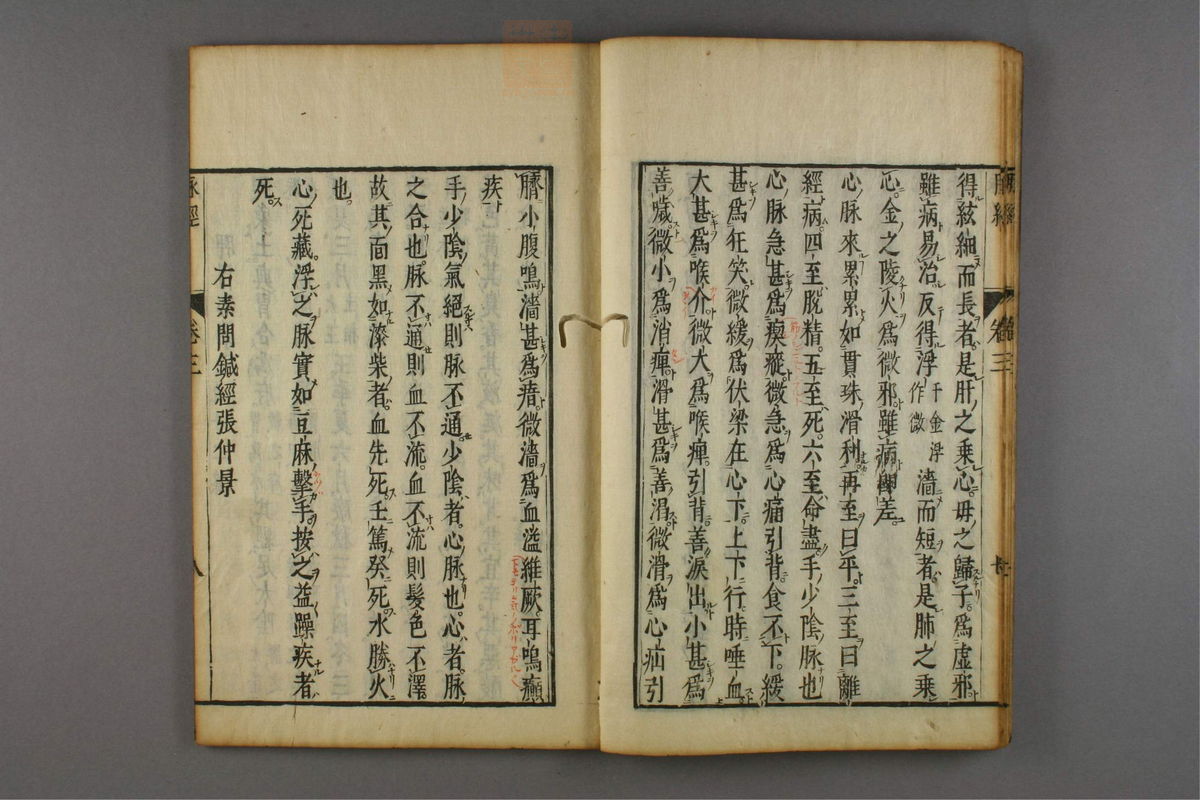 得弦細而長者是肝之乗心母之歸子爲虛邪
雖病易治反得浮千金浮作微濇而短者是肺之乗
心金之陵火爲微邪雖病即差
心脉來累累如貫珠滑利再至曰平三至曰離
經病四至脱精五至死六至命盡手少陰脉也
心脉急甚爲瘈瘲微急爲心痛引背食不下緩
甚爲狂笑微緩爲伏梁在心下上下行時唾血
大甚爲喉介微大爲喉痺引背善淚出小甚爲
善噦微小爲消癉滑甚爲善渴微滑爲心疝引
臍小腹鳴濇甚爲瘖微濇爲血溢維厥耳鳴癲
疾
手少陰氣絕則脉不通少陰者心脉也心者脉
之合也脉不通則血不流血不流則髮色不澤
故其面黑如漆柴者血先死壬篤癸死水勝火
也
心死藏浮之脉實如豆麻擊手按之益躁疾者
死
右素問鍼經張仲景
脉經
卷三
八